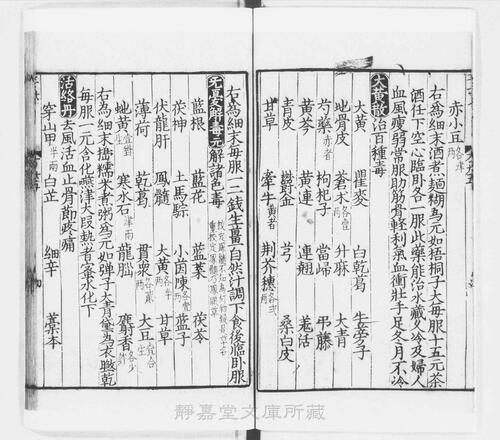 赤小豆
右為細末酒煮麵糊為元如梧桐子大每服十五元茶
酒任下空心臨卧一服此藥能治水藏久冷及婦人
血風瘦弱常服肋筋骨輕利氣血衝壯手足冬月不冷
治百種毒
大黃 瞿麥 白乾葛 牛蒡子
地骨皮 蒼术 升麻 大青
芍藥 枸杞子 當歸 吊藤
黃芩 黃連 連翹 羌活
青黛 鬱金 芎 桑白皮
甘草 牽牛 荊芥穗
右為細末每服一二錢生薑自然汁調下食後臨卧服
解毒元 解諸色毒
藍根 藍花 藍葉 茯苓
茯神 土馬騣 藍子
伏龍肝 鳳髓 大黃 甘草
薄荷 乾葛 貫衆 大豆
地黃 寒水石 龍腦 麝香
右為細末擣糯米煮粥為元如彈子大青黛為衣曬乾
每服一元含化嚥津大段熱者蜜水化下
活絡丹 去風活血止骨節疼痛
穿山甲 白芷 細辛 藁本
靜嘉堂文庫所藏